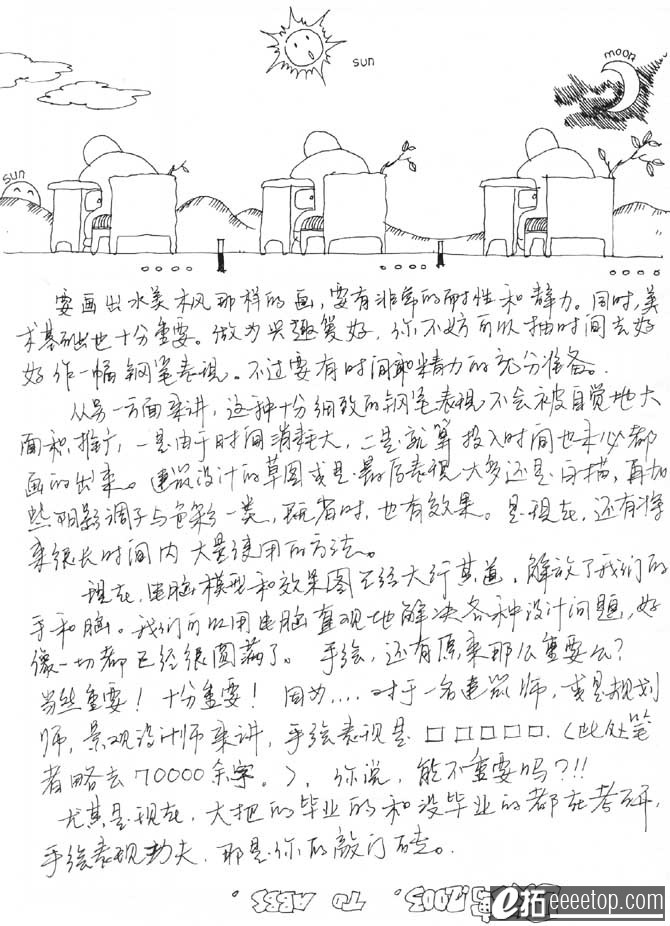 sun
moon
sun
要画出水美枫那样的画,要有非常的耐性和静力。同时,美
术基础也十分重要。做为兴趣爱好,你不妨可以抽时间去好
好作一幅钢笔表现。不过要有时间和精力的充分准备。
从另一方面来讲,这种十分细致的钢笔表现不会被自觉地大
面积推广,一是由于时间消耗大,二是就算投入时间也未必都
画的出来。建筑设计的草图或是最后表现大多还是白描,再加
些阴影调子与色彩一类,既省时,也有效果。是现在,还有将
来很长时间内大量使用的方法。
现在,电脑模型和效果图已经大行其道,解放了我们的
手和脑。我们可以用电脑直观地解决各种设计问题,好
像一切都已经很圆满了。手绘,还有原来那么重要么?
当然重要!十分重要!因为....对于一名建筑师,或是规划
师,景观设计师来讲,手绘表现是□□□□□.(此处笔
者略去70000余字。),你说,能不重要吗?!!
尤其是现在,大把的毕业的和没毕业的都在考研,
手绘表现功夫,那是你的敲门砖。
2003. TO ABBS.
e拓 eeeetop.com